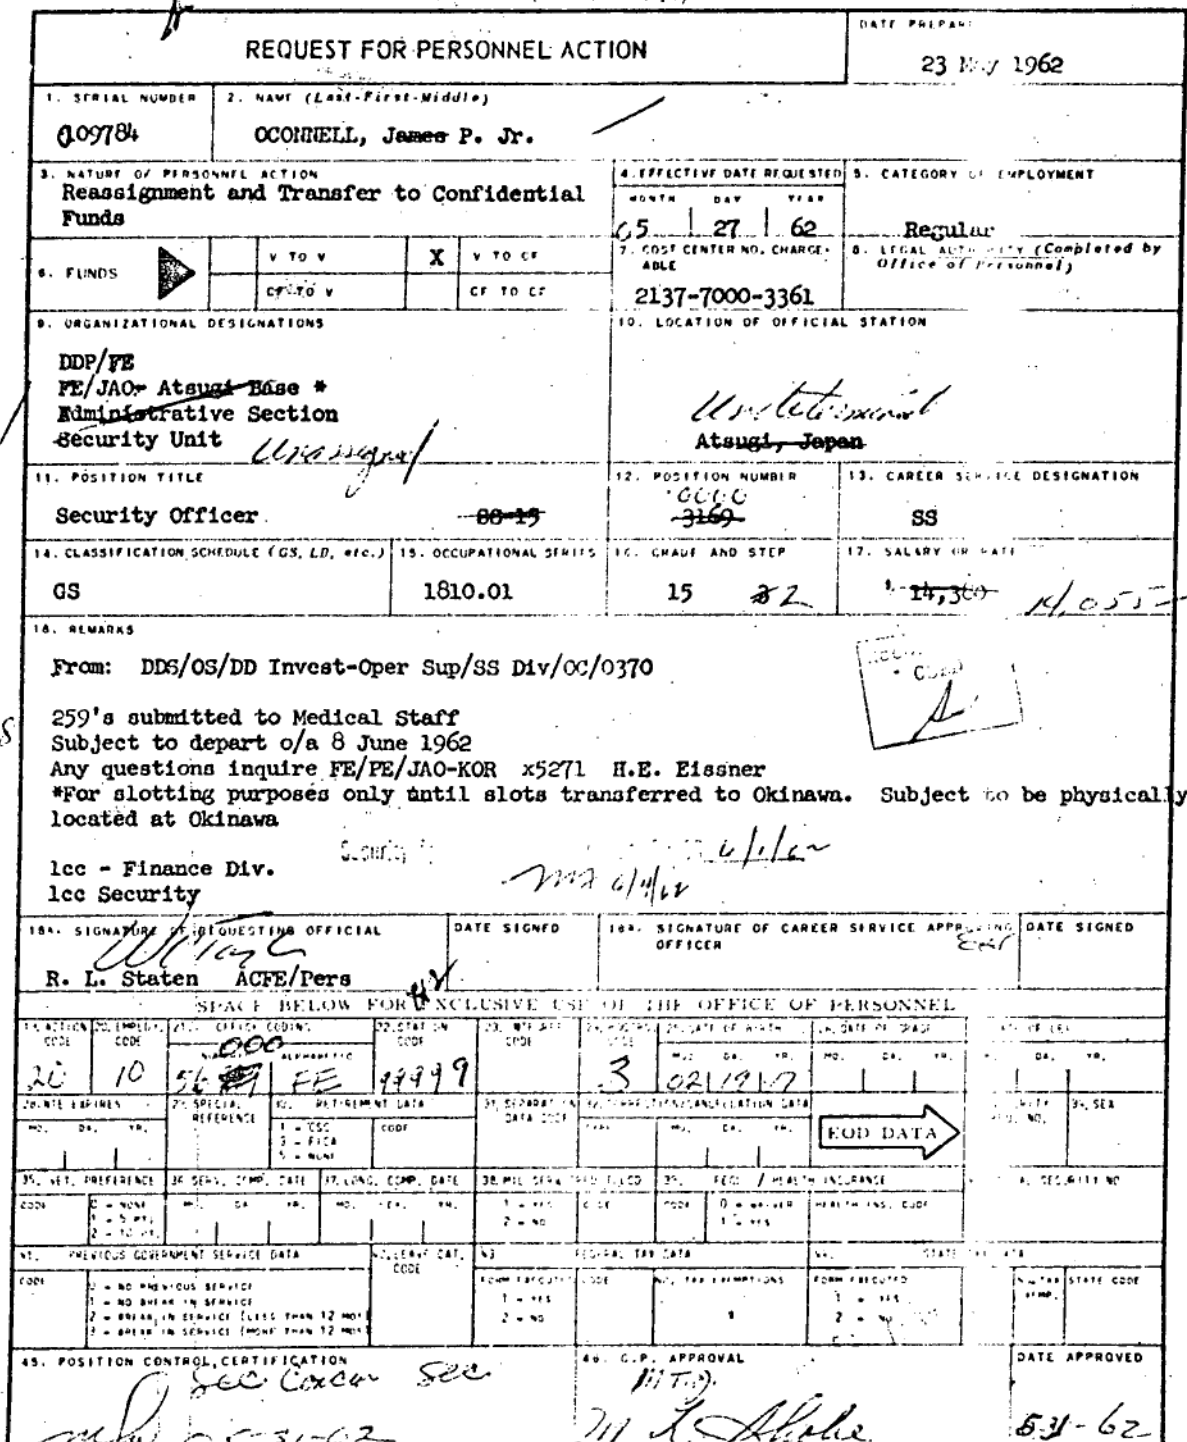 REQUEST FOR PERSONNEL ACTION
23 May 1962
1. SERIAL NUMBER
2. NAME (Last-First-Middle)
009784
OCONNELL, James P. Jr.
3. NATURE OF PERSONNEL ACTION
Reassignment and Transfer to Confidential
Funds
4. EFFECTIVE DATE REQUESTED
MONTH DAY YEAR
05 27 62
5. CATEGORY OF EMPLOYMENT
Regular
6. FUNDS
V TO V
X V TO CF
CF TO V
CF TO CF
7. COST CENTER NO. CHARGE-
ABLE
2137-7000-3361
8. LEGAL AUTHORITY (Completed by
Office of Personnel)
9. ORGANIZATIONAL DESIGNATIONS
DDP/FE
FE/JAO- Atsugi Base *
Administrative Section
Security Unit
Unassigned
10. LOCATION OF OFFICIAL STATION
Undetermined
Atsugi, Japan
11. POSITION TITLE
Security Officer
12. POSITION NUMBER
0000
3169
13. CAREER SERVICE DESIGNATION
SS
14. CLASSIFICATION SCHEDULE (GS, LD, etc.)
GS
15. OCCUPATIONAL SERIES
1810.01
16. GRADE AND STEP
15 2
17. SALARY OR RATE
14,055
18. REMARKS
From: DDS/OS/DD Invest-Oper Sup/SS Div/OC/0370
259's submitted to Medical Staff
Subject to depart o/a 8 June 1962
Any questions inquire FE/PE/JAO-KOR x5271 H.E. Eissner
*For slotting purposes only until slots transferred to Okinawa. Subject to be physically
located at Okinawa
6/1/62
1cc - Finance Div.
1cc Security
18A. SIGNATURE OF REQUESTING OFFICIAL
R. L. Staten ACFE/Pers
DATE SIGNED
18B. SIGNATURE OF CAREER SERVICE APPROVING
OFFICER
DATE SIGNED
SPACE BELOW FOR EXCLUSIVE USE OF THE OFFICE OF PERSONNEL
19. ACTION
CODE
20
20. EMPLOY.
CODE
10
21. OFFICE CODING
000
NUMERIC ALPHABETIC
56 FE
22. STATION
CODE
99999
23. INTEGREE
CODE
24. HDQTRS.
CODE
3
25. DATE OF BIRTH
MO. DA. YR.
02 19 17
26. DATE OF GRADE
MO. DA. YR.
DA. YR.
28. NTE EXPIRES
MO. DA. YR.
29. SPECIAL
REFERENCE
30. RETIREMENT DATA
1 - CSC
3 - FICA
5 - NONE
CODE
31. SEPARATION
DATA CODE
32. CORRECTION/CANCELLATION DATA
TYPE MO. DA. YR.
EOD DATA
34. SEX
35. VET. PREFERENCE
CODE
0 - NONE
1 - 5 PT.
2 - 10 PT.
36. SERV. COMP. DATE
MO. DA. YR.
37. LONG. COMP. DATE
MO. DA. YR.
1 - YES
2 - NO
CODE
39. FEGLI / HEALTH INSURANCE
CODE
0 - WAIVER
1 - YES
HEALTH INS. CODE
SECURITY NO
41. PREVIOUS GOVERNMENT SERVICE DATA
CODE
0 - NO PREVIOUS SERVICE
1 - NO BREAK IN SERVICE
2 - BREAK IN SERVICE (LESS THAN 12 MOS)
3 - BREAK IN SERVICE (MORE THAN 12 MOS)
42. LEAVE CAT.
CODE
43. FEDERAL TAX DATA
FORM EXECUTED
1 - YES
2 - NO
CODE
NO. TAX EXEMPTIONS
44. STATE TAX DATA
FORM EXECUTED
1 - YES
2 - NO
NO. TAX
EXEMP.
STATE CODE
45. POSITION CONTROL CERTIFICATION
46. O.P. APPROVAL
DATE APPROVED
5-31-62